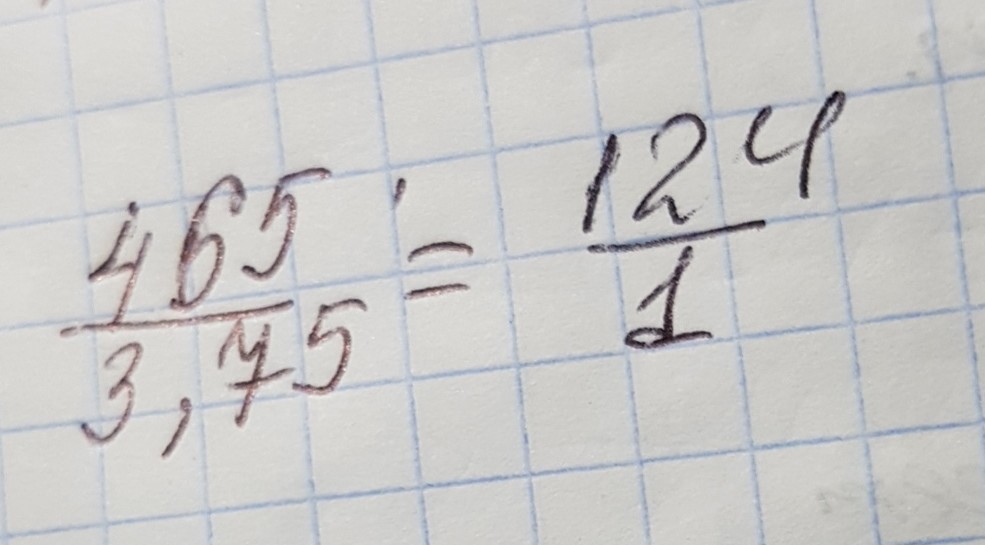 465/3,75 = 124/1